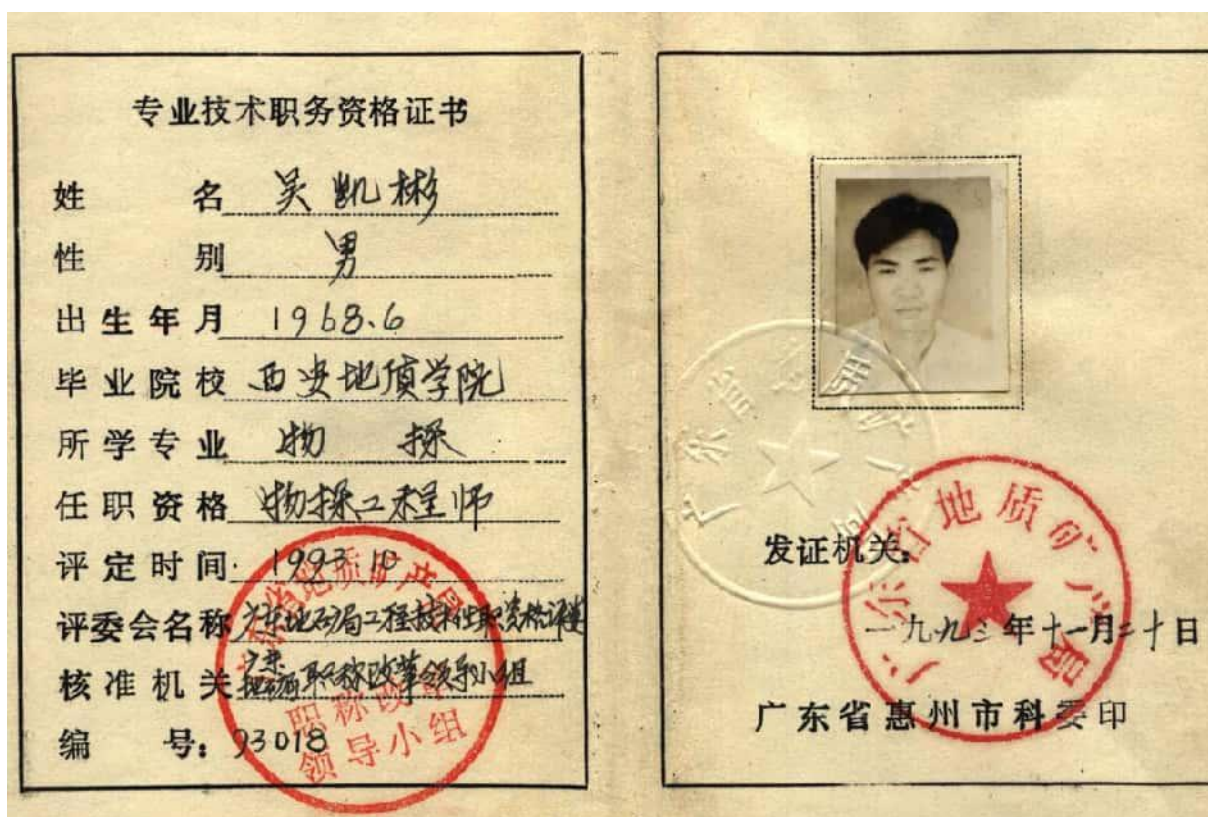 专业技术职务资格证书
姓名 吴凯彬
性别 男
出生年月 1968.6
毕业院校 西安地质学院
所学专业 物探
任职资格 物探工程师
评定时间 1993.10
评委会名称 广东地矿局工程技术任职资格评委
核准机关 广东地矿局职称改革领导小组
编号:93018
广东省地质矿产局
职称改革
领导小组
广东省地质矿产局
发证机关:
广东省地质矿产局
一九九三年十一月二十日
广东省惠州市科委印